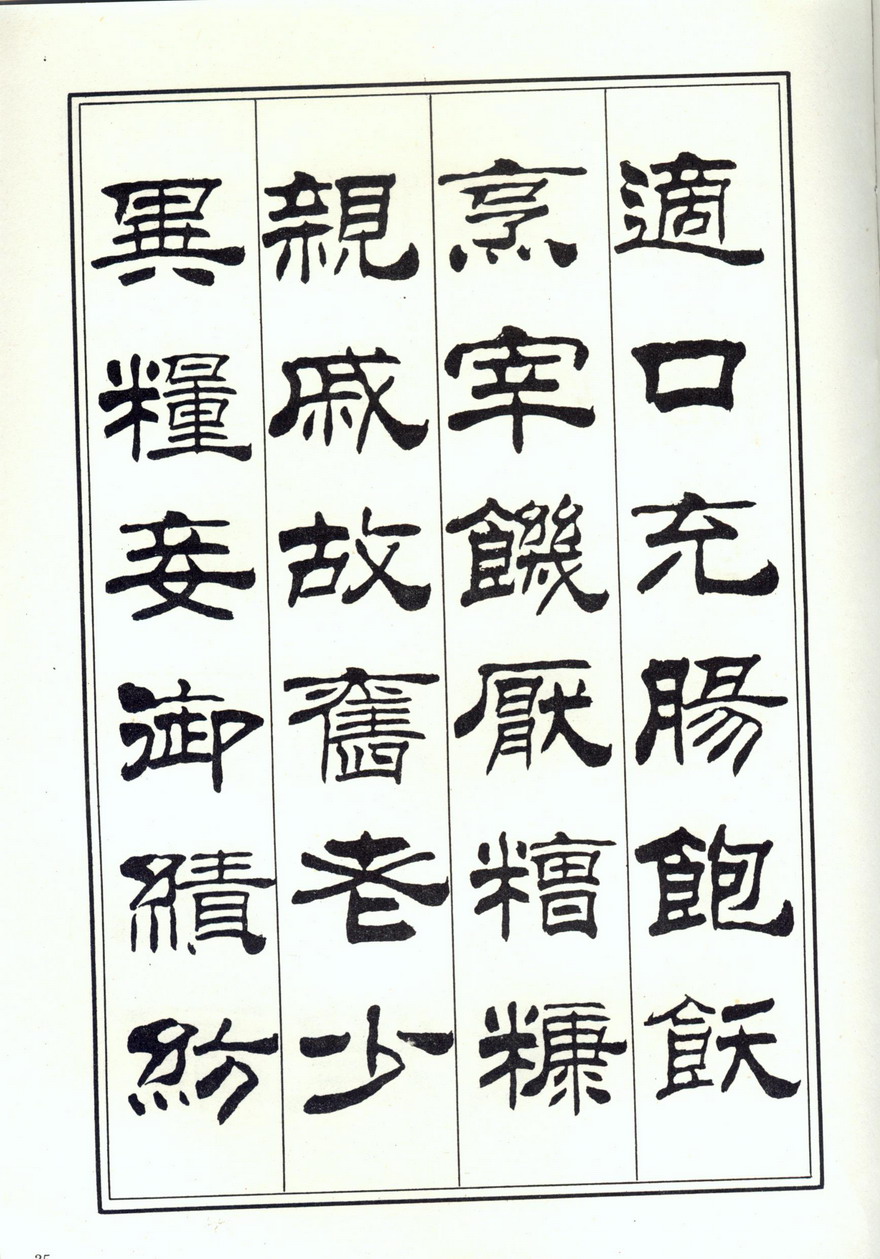 適口充腸飽飫
烹宰饑厭糟糠
親戚故舊老少
異糧妾御績紡
35